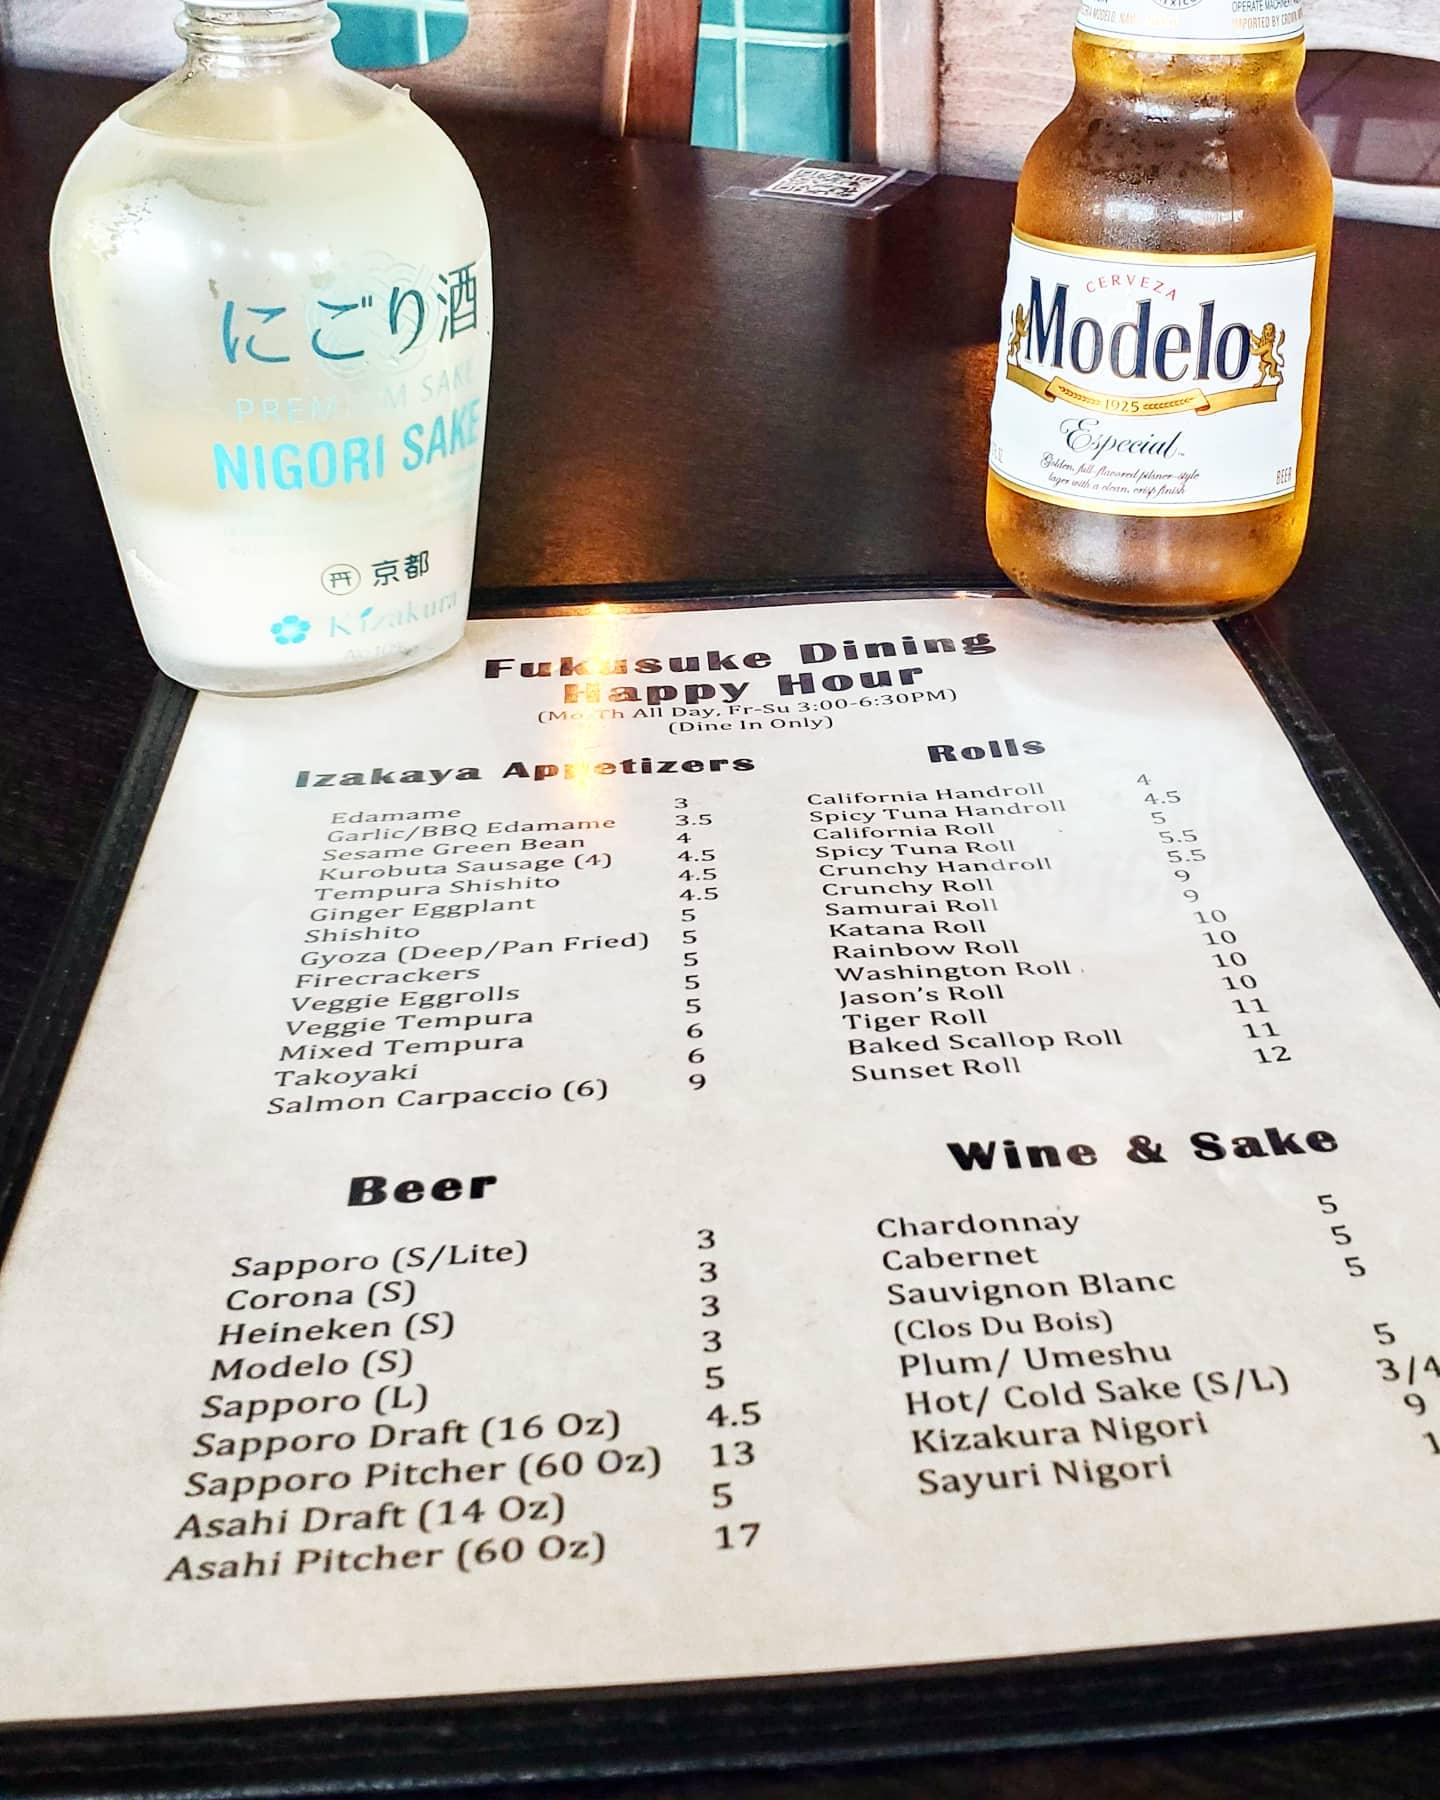 にごり酒
PREMIUM SAKE
NIGORI SAKE
京都
Kizakura
OPERATE MACHINERY
IMPORTED BY CROWN
CERVEZA
Modelo
1925
Especial
Golden, full-flavored pilsner-style
lager with a clean, crisp finish
BEER
Fukusuke Dining
Happy Hour
(Mo-Th All Day, Fr-Su 3:00-6:30PM)
(Dine In Only)
Izakaya Appetizers
Edamame 3
Garlic/BBQ Edamame 3.5
Sesame Green Bean 4
Kurobuta Sausage (4) 4.5
Tempura Shishito 4.5
Ginger Eggplant 4.5
Shishito 5
Gyoza (Deep/Pan Fried) 5
Firecrackers 5
Veggie Eggrolls 5
Veggie Tempura 5
Mixed Tempura 6
Takoyaki 6
Salmon Carpaccio (6) 9
Rolls
California Handroll 4
Spicy Tuna Handroll 4.5
California Roll 5
Spicy Tuna Roll 5.5
Crunchy Handroll 5.5
Crunchy Roll 9
Samurai Roll 9
Katana Roll 10
Rainbow Roll 10
Washington Roll 10
Jason's Roll 10
Tiger Roll 11
Baked Scallop Roll 11
Sunset Roll 12
Beer
Sapporo (S/Lite) 3
Corona (S) 3
Heineken (S) 3
Modelo (S) 3
Sapporo (L) 5
Sapporo Draft (16 Oz) 4.5
Sapporo Pitcher (60 Oz) 13
Asahi Draft (14 Oz) 5
Asahi Pitcher (60 Oz) 17
Wine & Sake
Chardonnay 5
Cabernet 5
Sauvignon Blanc 5
(Clos Du Bois)
Plum/ Umeshu 5
Hot/ Cold Sake (S/L) 3/4
Kizakura Nigori 9
Sayuri Nigori